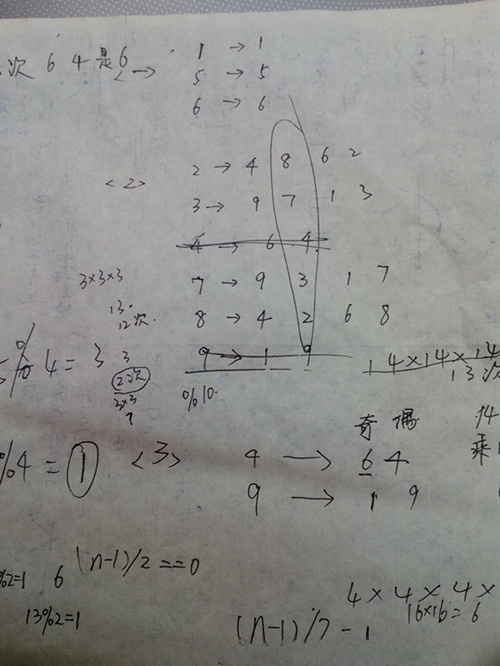 次 6 4 是 6
<一>
1 → 1
5 → 5
6 → 6
<2>
2 → 4 8 6 2
3 → 9 7 1 3
4 → 6 4
7 → 9 3 1 7
8 → 4 2 6 8
9 → 1 9
%10
3×3×3
13.
12次.
4=3 3
2次
2×3
14×14×14
13次
奇 偶
<3>
4 → 6 4
9 → 1 9
14
乘
%4=1
%2=1 6 (n-1)/2==0
13%2=1
4×4×4×
16×16=6